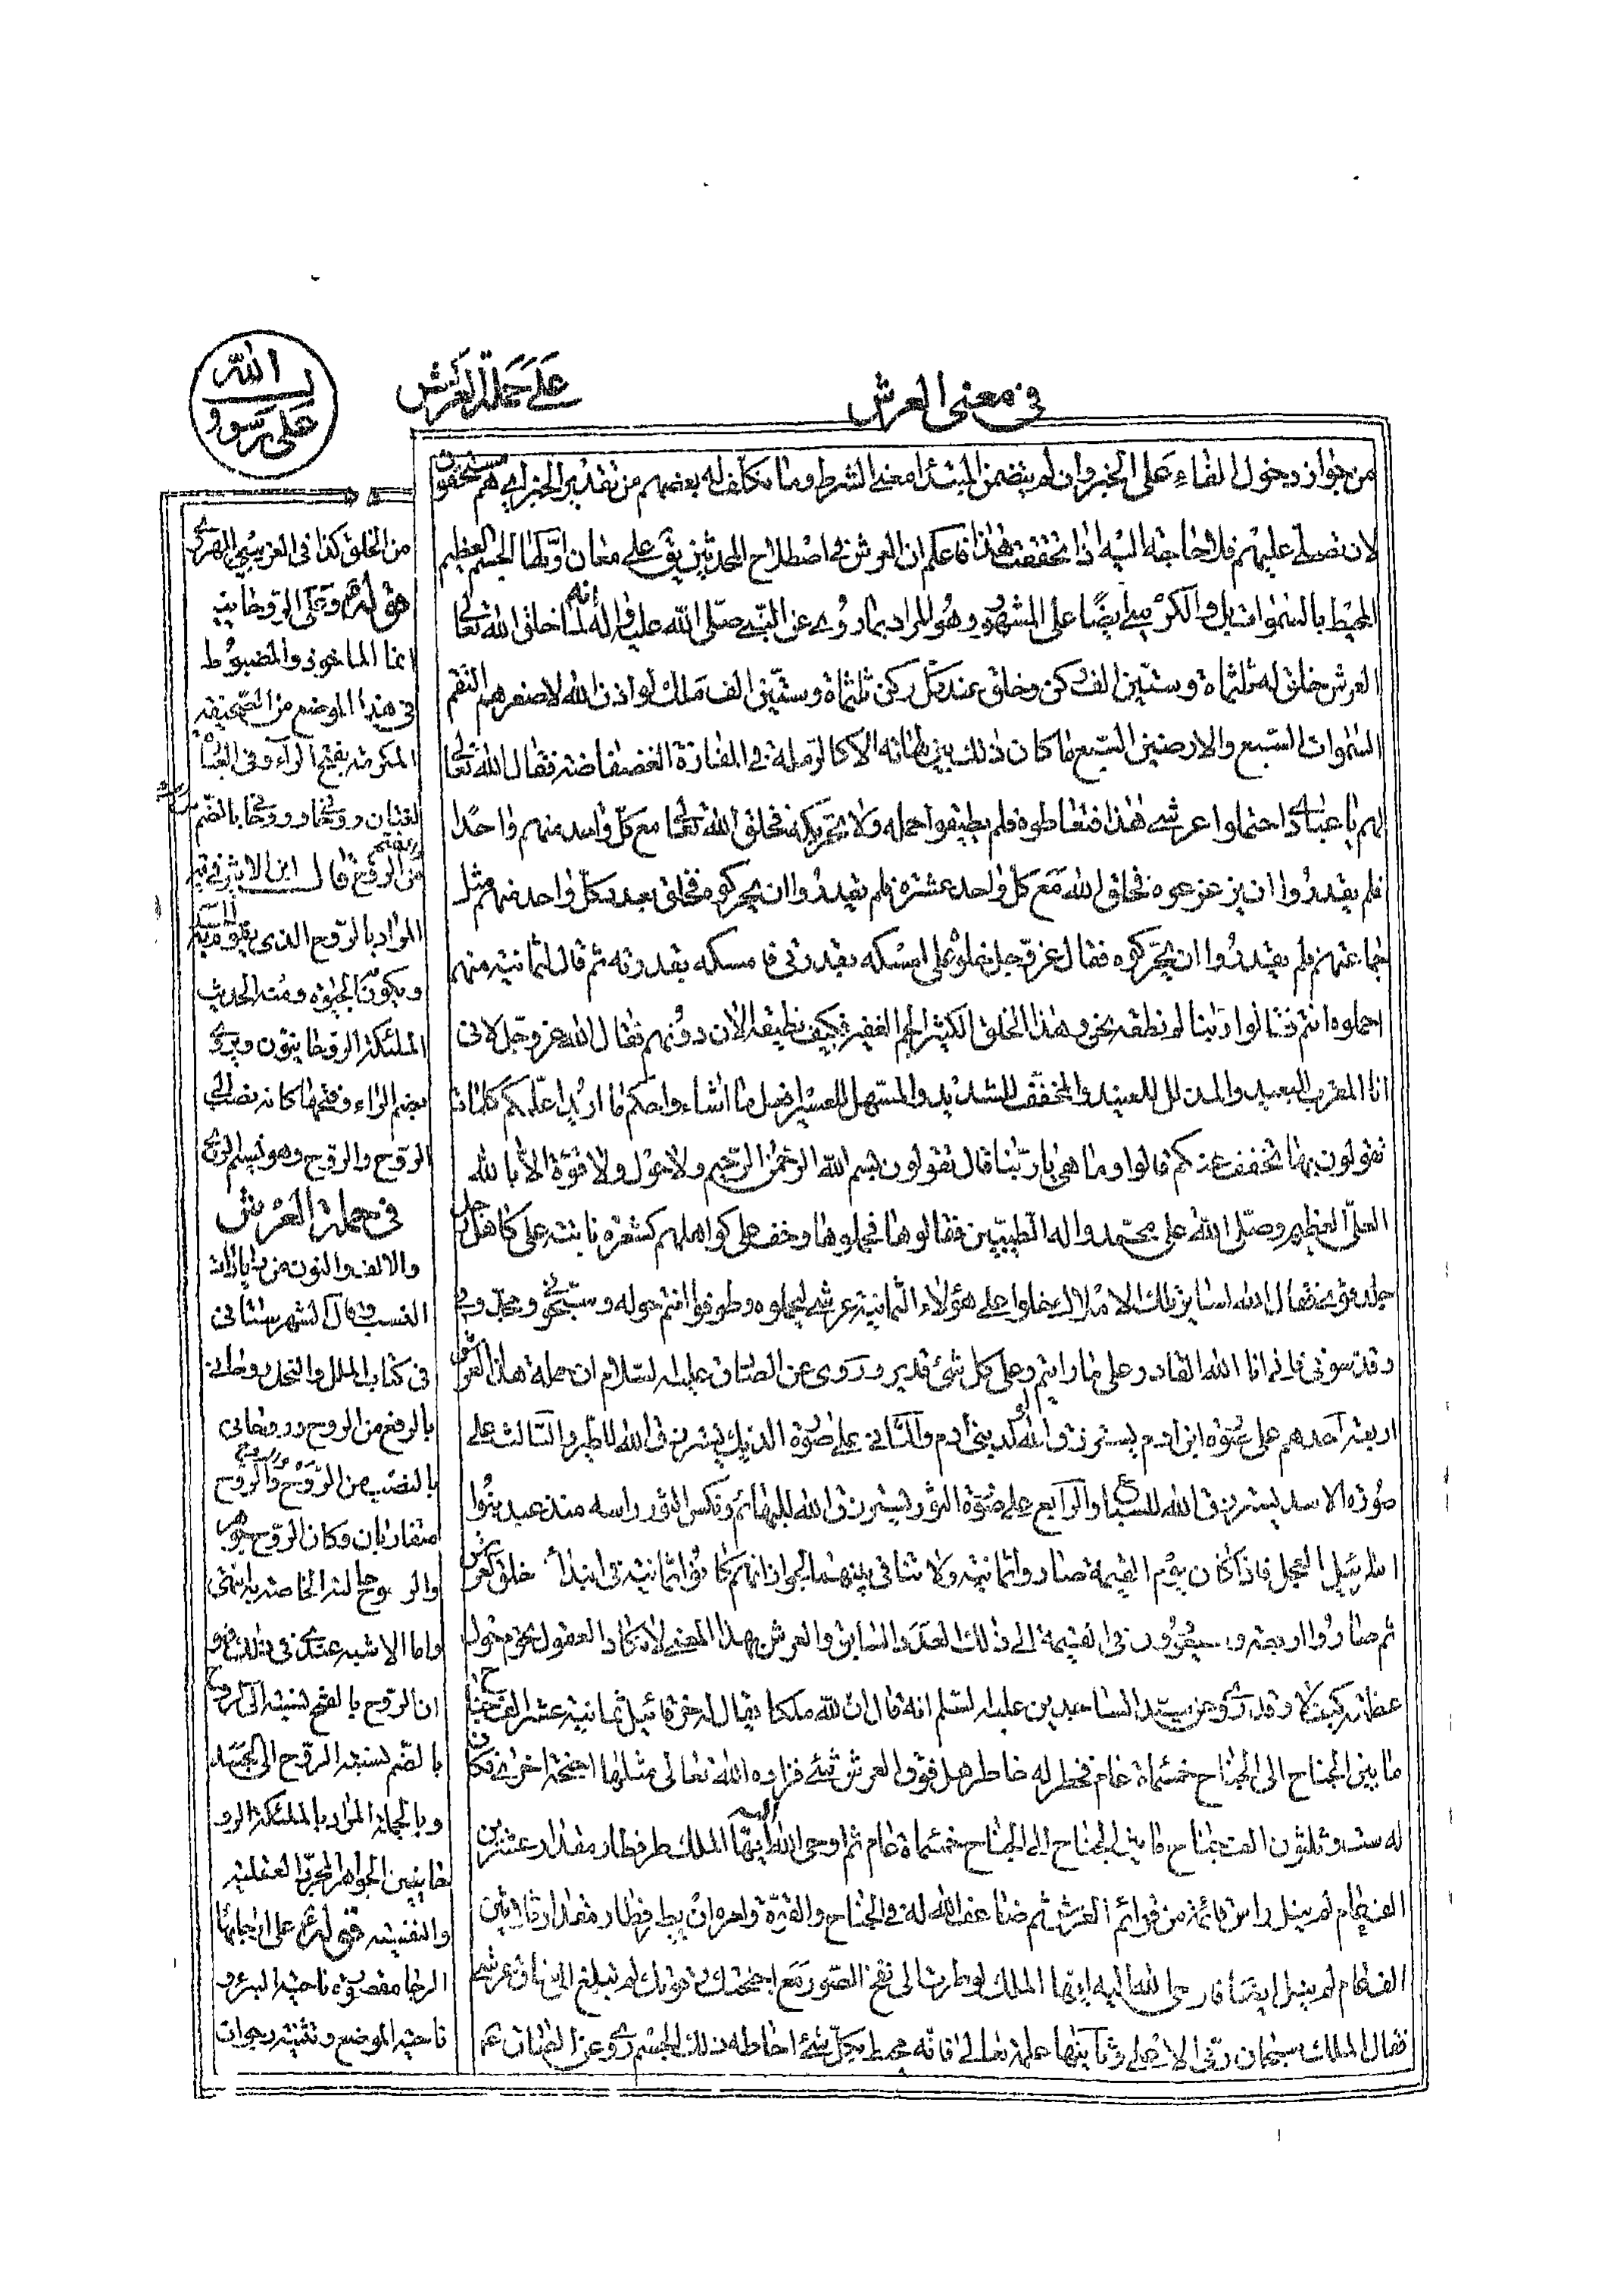 في معنى العرش
على حملة العرش
الله
على رسوله
من جواز دخول الفاء على الخبر وان لم يتضمن المبتدأ معنى الشرط وما تكلف له بعضهم من تقدير الخبر اي هم مستحقون
لان نصلي عليهم فلا حاجة اليه اذا تحققت هذا فاعلم ان العرش في اصطلاح المحدثين يقع على معان اولها الجسم العظيم
المحيط بالسموات بل والكرسي ايضا على المشهور وهو المراد بما روي عن النبي صلى الله عليه واله انه لما خلق الله تعالى
العرش خلق له ثلثمائة وستين الف ركن وخلق عند كل ركن ثلثمائة وستين الف ملك لو اذن الله لاصغرهم التقم
السموات السبع والارضين السبع ما كان ذلك بين لهاته الا كالرملة في المفازة الفضفاضة فقال الله تعالى
لهم يا عبادي احتملوا عرشي هذا فتعاطوه فلم يطيقوا حمله ولا تحريكه فخلق الله تعالى مع كل واحد منهم واحدا
فلم يقدروا ان يزعزعوه فخلق الله مع كل واحد عشرة فلم يقدروا ان يحركوه فخلق بعدد كل واحد منهم مثل
جماعتهم فلم يقدروا ان يحركوه فقال عز وجل خلوه علي امسكه بقدرتي فامسكه بقدرته ثم قال لثمانية منهم
احملوه انتم فقالوا ربنا لم نطقه نحن وهذا الخلق الكثير الجم الغفير فكيف نطيقه الان دونهم فقال الله عز وجل لاني
انا المقرب البعيد والمذلل للعبيد والمخفف للشديد والمسهل للعسير افعل ما اشاء واحكم ما اريد اعلمكم كلمات
تقولون بها تخفف عنكم قالوا وما هي يا ربنا قال تقولون بسم الله الرحمن الرحيم ولا حول ولا قوة الا بالله
العلي العظيم وصلى الله على محمد واله الطيبين فقالوها فحملوها وخف على كواهلهم كشعرة نابتة على كاهل رجل
جلد قوي فقال الله لسائر تلك الاملاك خلوا على هؤلاء الثمانية عرشي ليحملوه وطوفوا انتم حوله وسبحوني ومجدوني
وقدسوني فاني انا الله القادر على ما رايتم وعلى كل شئ قدير وروى عن الصادق عليه السلام ان حملة هذا العرش
اربعة احدهم على صورة ابن ادم يسترزق الله لولد بني ادم والثاني على صورة الديك يسترزق الله للطير والثالث على
صورة الاسد يسترزق الله للسباع والرابع على صورة الثور يسترزق الله للبهائم ونكس الثور راسه منذ عبد بنوا
اسرائيل العجل فاذا كان يوم القيمة صاروا ثمانية ولا تنافي بينهما لجواز انهم كانوا ثمانية في ابتداء خلق العرش
ثم صاروا اربعة وسيعودون في القيمة الى ذلك العدد السابق والعرش بهذا المعنى لا تكاد العقول تحوم حول
عظمته كيف لا وقد روي عن سيد الساجدين عليه السلم انه قال ان لله ملكا يقال له حزقائيل ثمانية عشر الف جناح
ما بين الجناح الى الجناح خمسمائة عام فخطر له خاطر هل فوق العرش شئ فزاده الله تعالى مثلها اجنحة اخرى فكان
له ست وثلثون الف جناح ما بين الجناح الى الجناح خمسمائة عام ثم اوحى الله اليه ايها الملك طر فطار مقدار عشرين
الف عام لم ينل راس قائمة من قوائم العرش ثم ضاعف الله له في الجناح والقوة وامره ان يطير فطار مقدار ثلاثين
الف عام لم ينل ايضا فاوحى الله اليه ايها الملك لو طرت الى نفخ الصور مع اجنحتك وقوتك لم تبلغ الى ساق عرشي
فقال الملك سبحان ربي الاعلى وثانيها علمه تعالى فانه محيط بكل شئ احاطة ذلك الجسم روي عن الصادق عم
من الخلق كذا في الغريبين للهروي
قوله وعلى الروحانيين
انما الماخوذ والمضبوط
في هذا الموضع من الصحيفة
المكرمة بفتح الراء وفي
لغتان روحاني وروحاني بالضم
من الروح قال ابن الاثير في
المراد بالروح الذي يقوم به الجسد
ويكون به الحيوة ومنه الحديث
الملئكة الروحانيون ويروى
بضم الراء وفتحها كانه نسب الى
الروح والروح وهو نسيم الريح
في حملة العرش
والالف والنون من زيادات
النسب وقال الشهرستاني
في كتاب الملل والنحل روحاني
بالرفع من الروح وروحاني
بالنصب من الروح والروح والروح
متقاربان وكان الروح جوهر
والروح حالته الخاصة به انتهى
واما الاشبه عندي في ذلك هو
ان الروح بالفتح نسبته الى الروح
بالضم نسبة الروح الى الجسد
وبالجملة المراد بالملئكة الرو
حانيين الجواهر المجردة العقلية
والنفسية قوله على ارجائها
الرجا مقصورة ناحية البئر و
ناحية الموضع وتثنيته رجوان